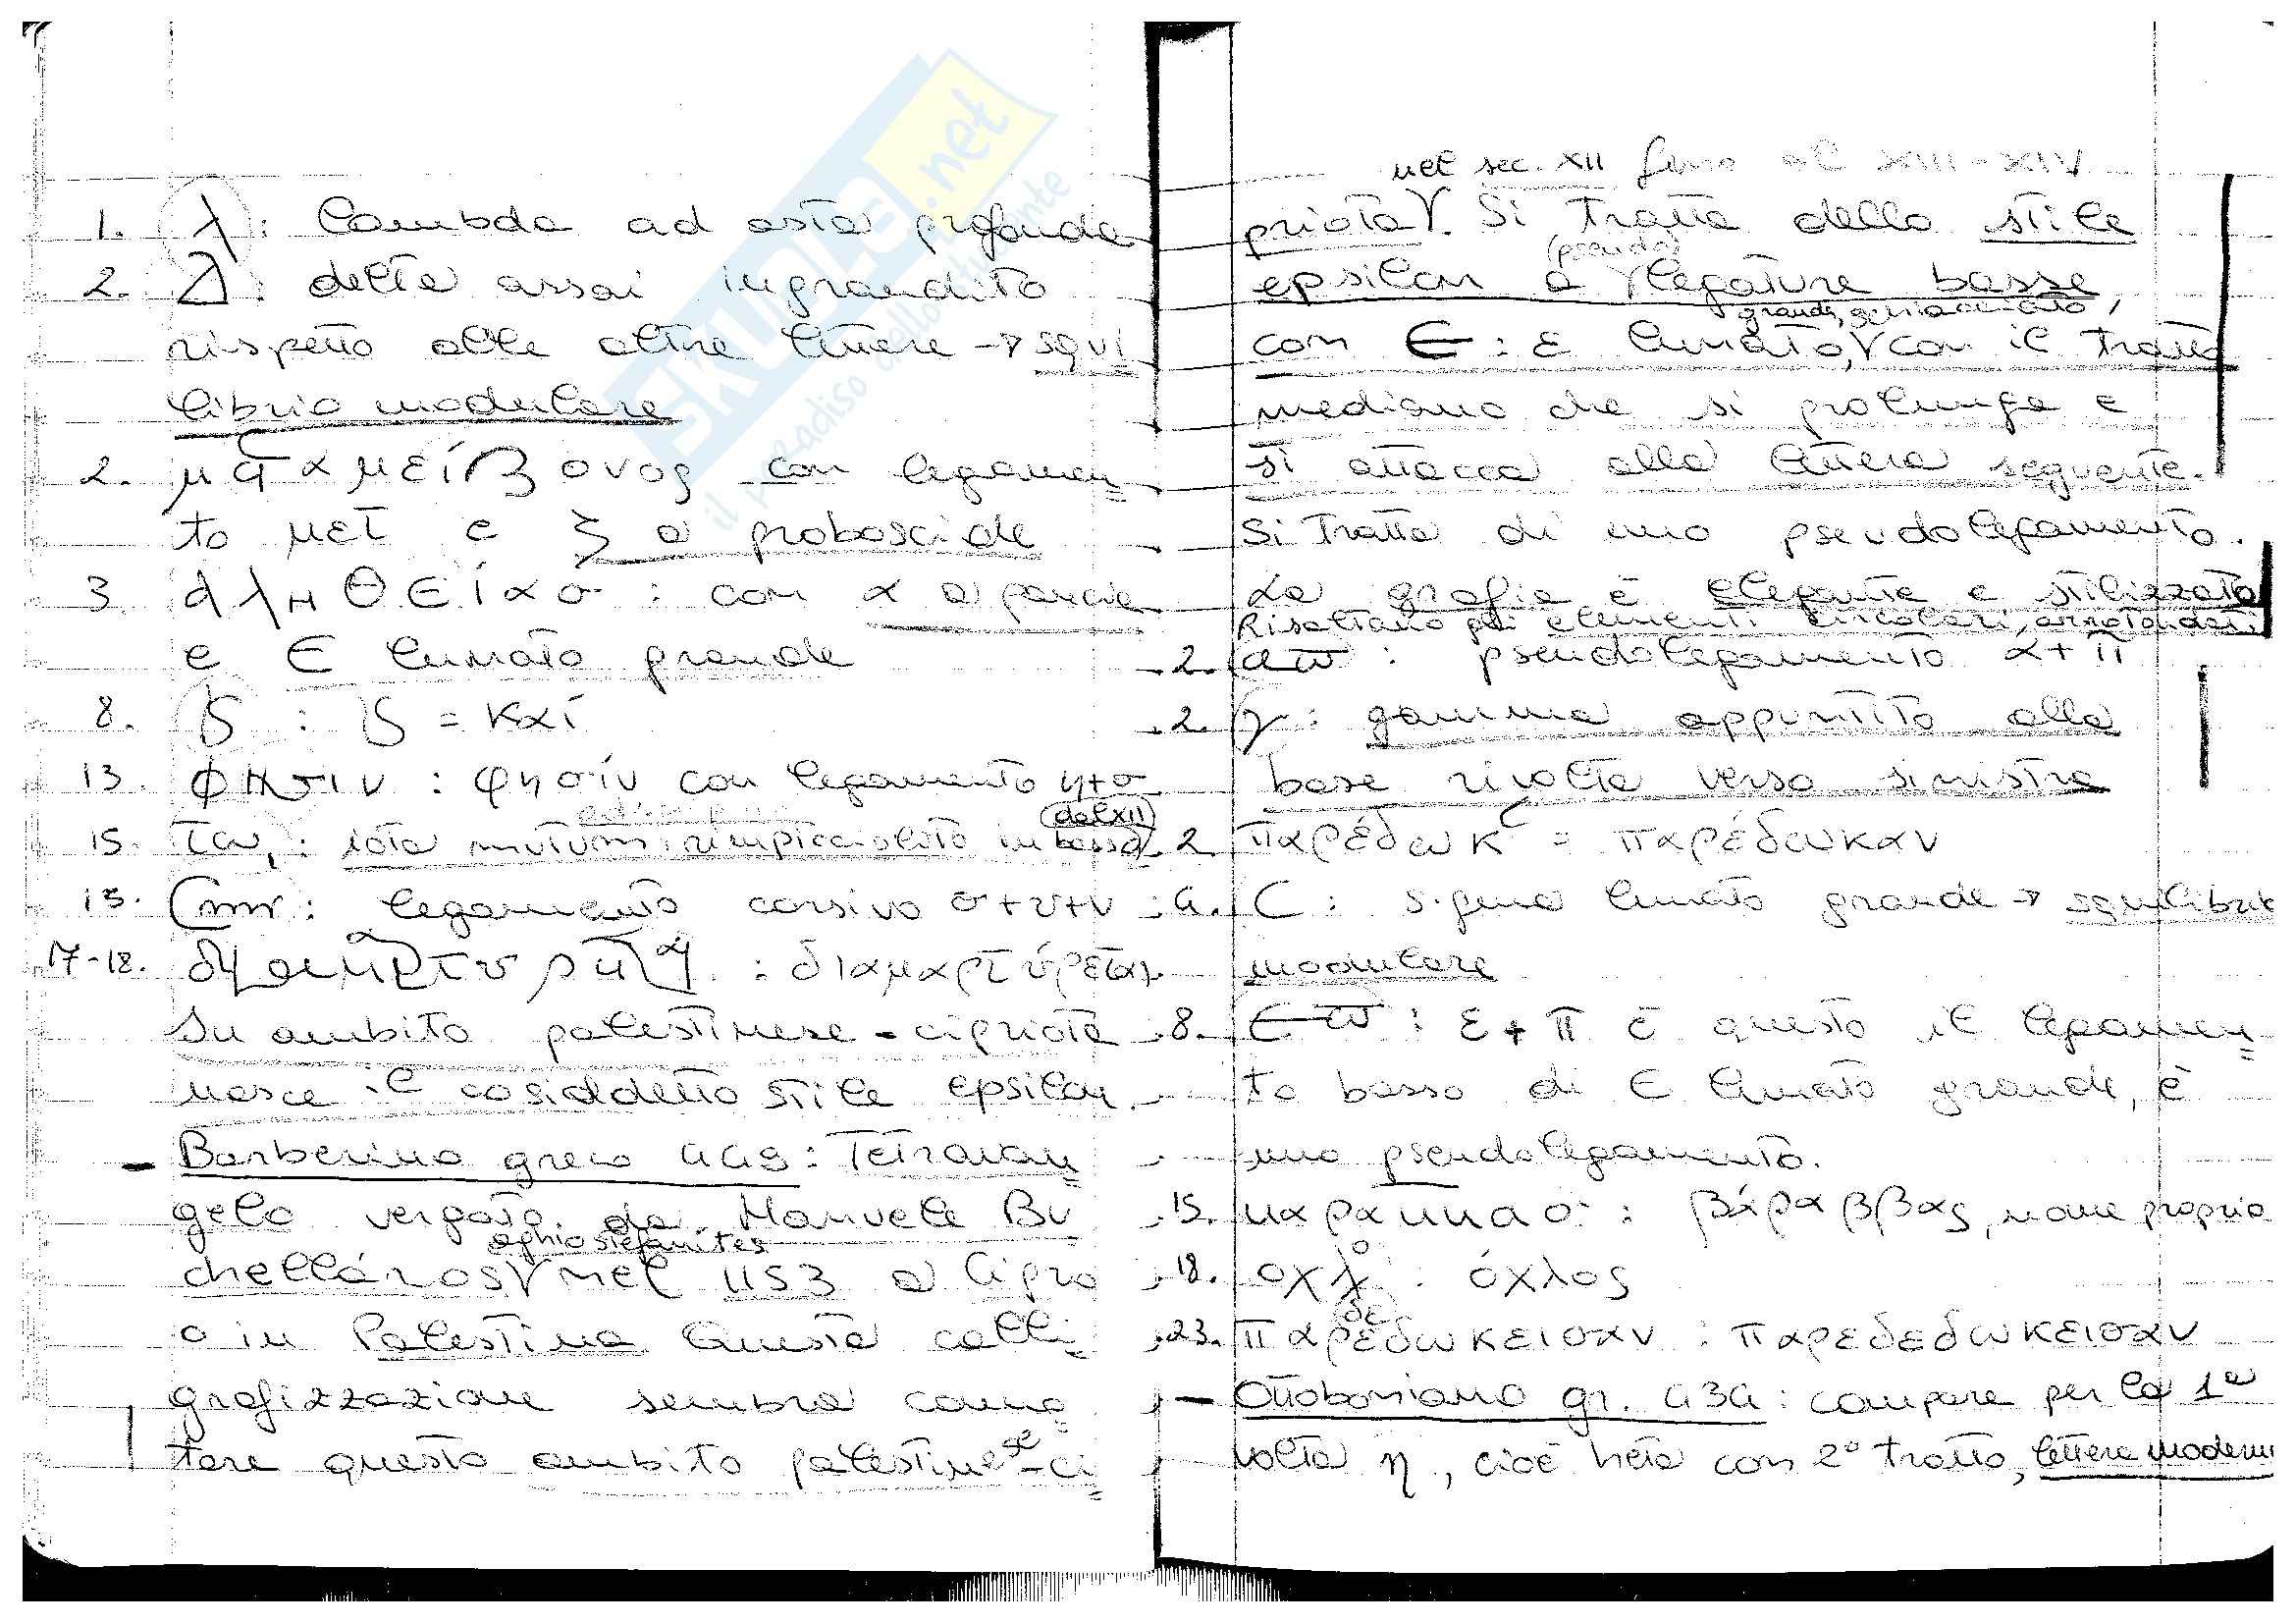 1. λ : lambda ad asta profonda
2. Δ : delta assai ingrandito
rispetto alle altre lettere → squi
librio modulare
2. με͂τα μείζονος con legamen=
to μετ e ζ a proboscide
3. ἀληθείασ : con α a fascia
e Є lunato grande
8. Ϛ : Ϛ = καί
13. φησιν : φησίν con legamento η+σ
15. τω, : iota mutum rimpicciolito in basso (dal XII)
15. : legamento corsivo σ+υ+ν
17-18. : διαμαρτύρεται
In ambito palestinese-cipriota
nasce il cosiddetto stile epsilon.
- Barberino greco 449: Tetravan=
gelo vergato da Manuele Bu
aghiostefanites
chelláros V nel 1153 a Cipro
o in Palestina Questa calli=
grafizzazione sembra conno=
tare questo ambito palestinese-ci=
nel sec. XII fino al XIII-XIV
priota V. Si tratta dello stile
(pseudo)
epsilon a V legature basse,
grande, schiacciato
con Є : ε lunato, V con il tratto
mediano che si prolunga e
si attacca alla lettera seguente.
Si tratta di uno pseudolegamento.
La grafia è elegante e stilizzata
Risaltano poi elementi circolari, arrotondati
2. αϖ : pseudolegamento α+π
2. γ : gamma appuntito alla
base rivolta verso sinistra
2 παρέδωκ = παρέδωκαν
4. C : sigma lunato grande → squilibrio
modulare
8. Єϖ : ε+π è questo il legamen=
to basso di Є lunato grande, è
uno pseudolegamento.
15. : βάραββας, nome proprio
18. οχλο : όχλος
δε
23. παρέδωκεισαν : παρεδεδωκεισαν
- Ottoboniano gr. 434: compare per la 1ª
volta η, cioè heta con 2° tratto, lettere moderni
SKUOLA.net
il paradiso dello studente